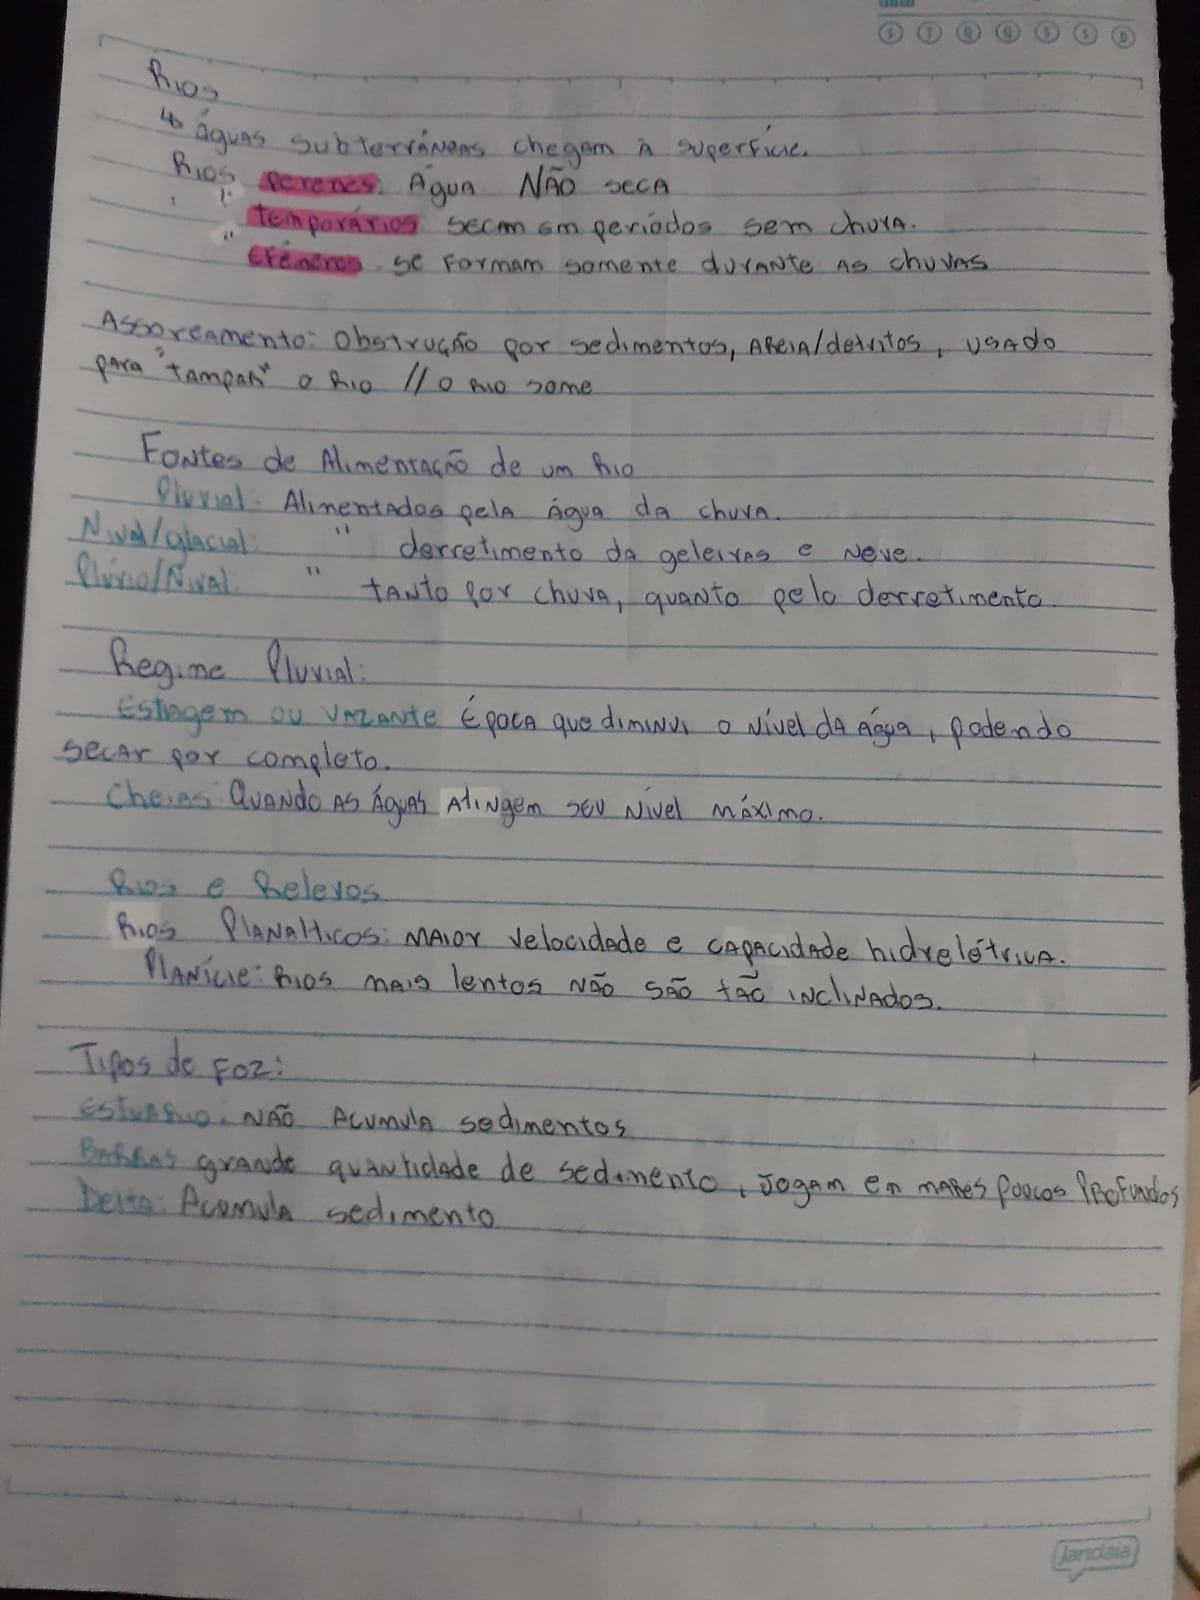 S T Q Q S S D
Rios
↳ Águas subterrâneas chegam à superfície.
Rios perenes: Água NÃO seca
" temporários: secam em períodos sem chuva.
" Efêmeros: se formam somente durante as chuvas
Assoreamento: Obstrução por sedimentos, areia/detritos, usado
para "tampar" o Rio // o Rio some
Fontes de Alimentação de um Rio
Pluvial: Alimentados pela água da chuva.
Nival/glacial: " derretimento da geleiras e neve.
Plúvio/Nival: " tanto por chuva, quanto pelo derretimento
Regime Pluvial:
Estiagem ou vazante Época que diminui o nível da água, podendo
secar por completo.
Cheias: Quando as águas atingem seu nível máximo.
Rios e Relevos
Rios Planálticos: maior velocidade e capacidade hidrelétrica.
Planície: Rios mais lentos não são tão inclinados.
Tipos de Foz:
Estuário: NÃO Acumula sedimentos
Barras grande quantidade de sedimento, jogam em mares poucos profundos
Delta: Acumula sedimento
Jandaia